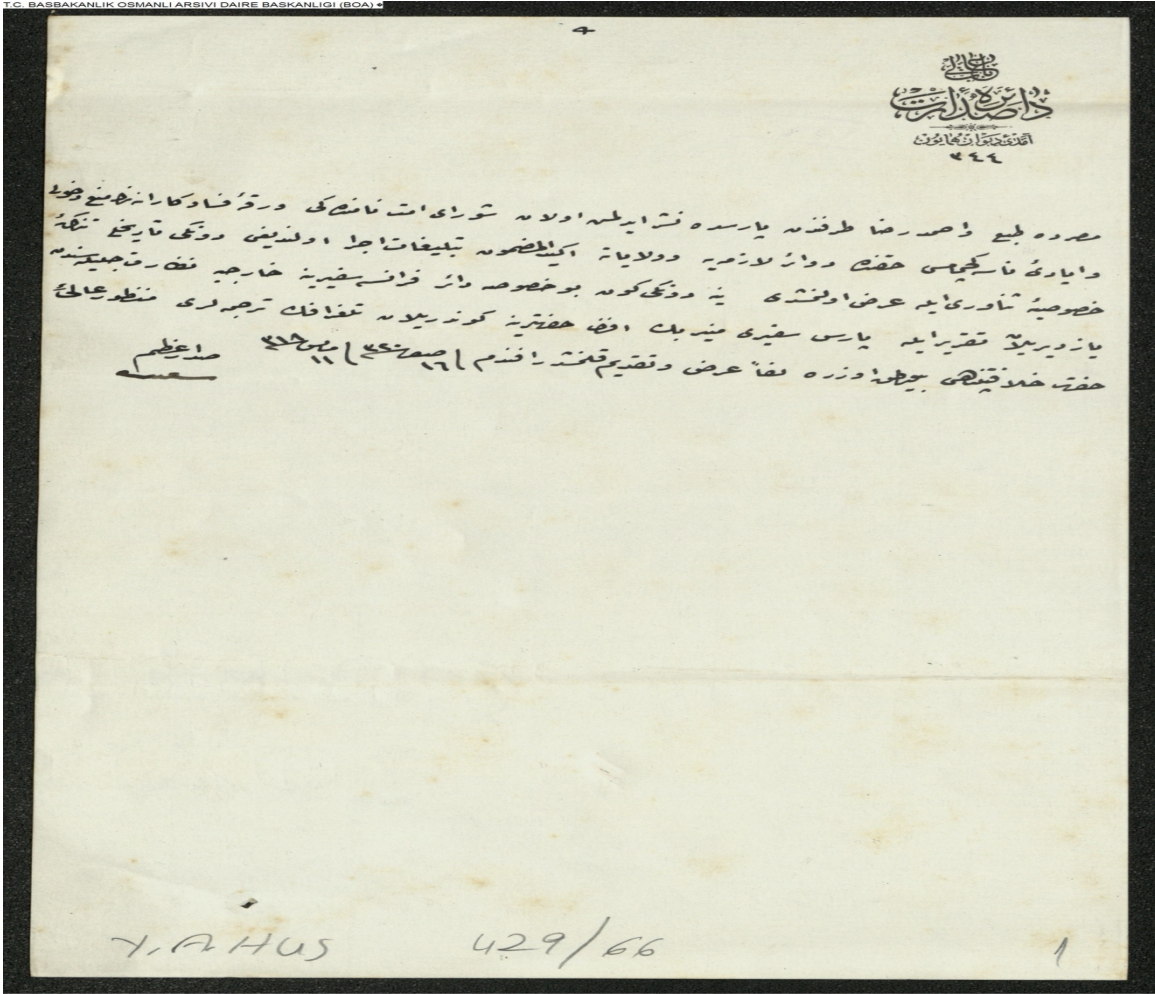 T.C. BASBAKANLIK OSMANLI ARSIVI DAIRE BASKANLIGI (BOA)
باب عالی
دائرۀ صدارت
آمدی دیوان همایون
٣٤٤
مصرده طبع و احمد رضا طرفندن پارسده نشر ایدلمش اولان شورای امت نامنده کی ورقۀ فسادکارانه نك منع دخولی
و ایادئ ناسه کچمامسی حقنده دوائر لازمیه و ولایاته اکید المضمون تبلیغات اجرا اولندیغی دونکی تاریخلی تذکرۀ
خصوصیۀ ثناوری ایله عرض اولنمشدی ینه دونکی کون بو خصوصه دائر فرانسه سفیرینه خارجیه نظارت جلیله سندن
یازدیریلان تقریر ایله پارس سفیری منیر بك افندی حضرتلرینه کوندریلان تلغرافك ترجمه لری منظور عالئ
حضرت خلافتپناهی بیورلمق اوزره لفاً عرض و تقدیم قلنمشدر افندم فی ١٦ صفر ٣٢٠ فی ١١ مایس ٣١٨
صدر اعظم
سعید
Y.A.HUS 429/66 1